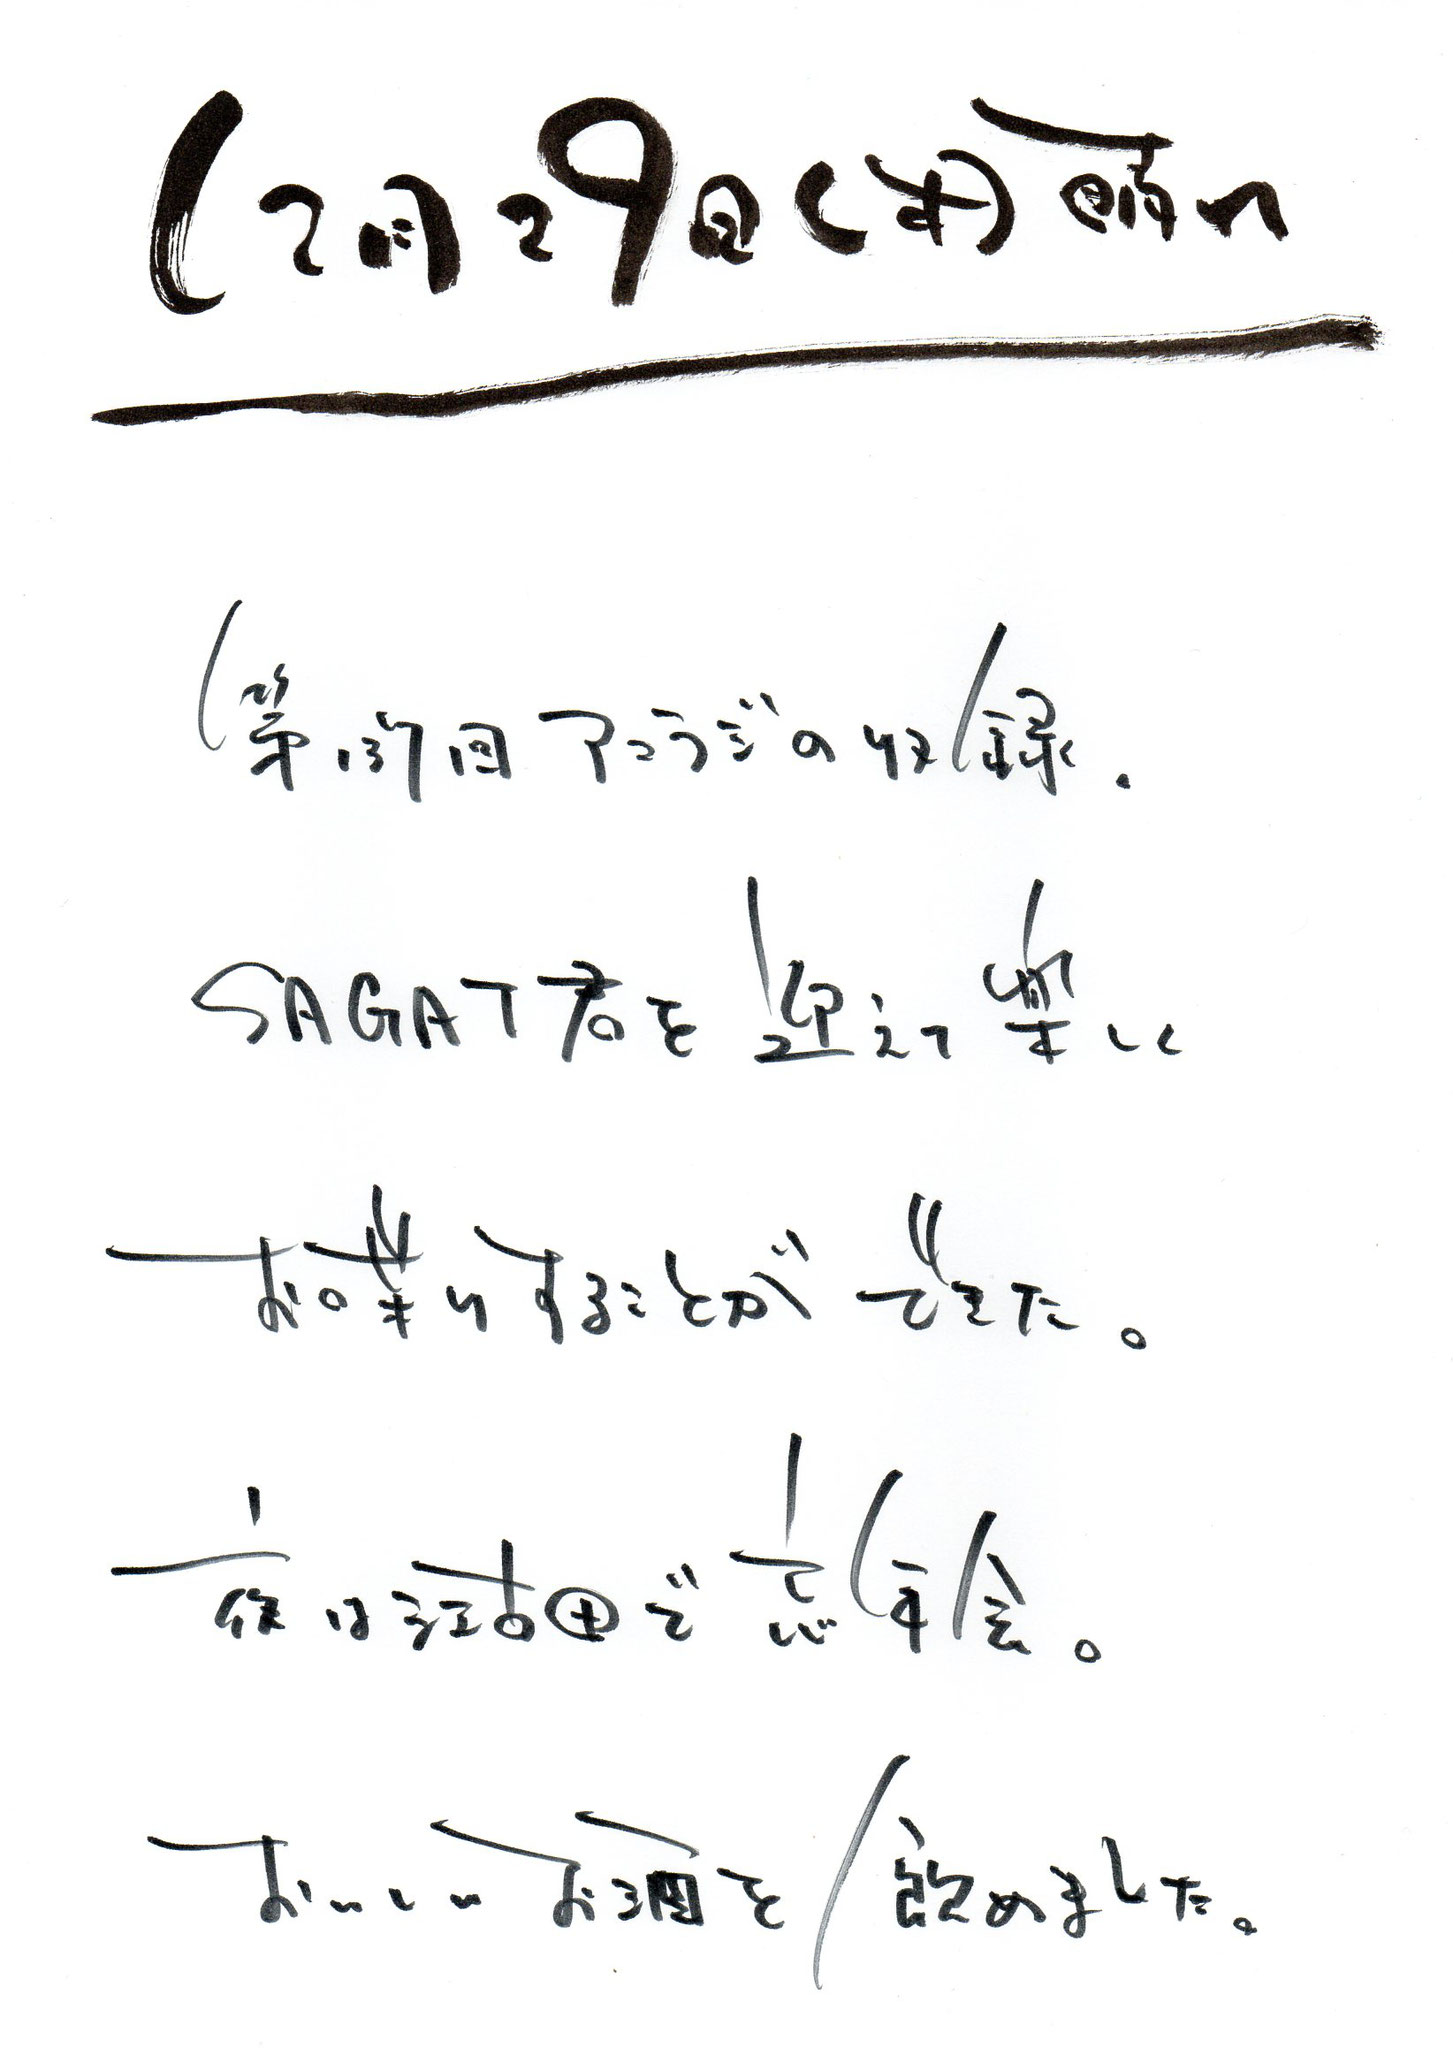 12月29日(木)晴れ
第137回アコラジの収録.
SAGAT君を迎えて楽しく
お喋りすることができた。
夜は江古田で忘年会。
おいしいお酒を飲めました。